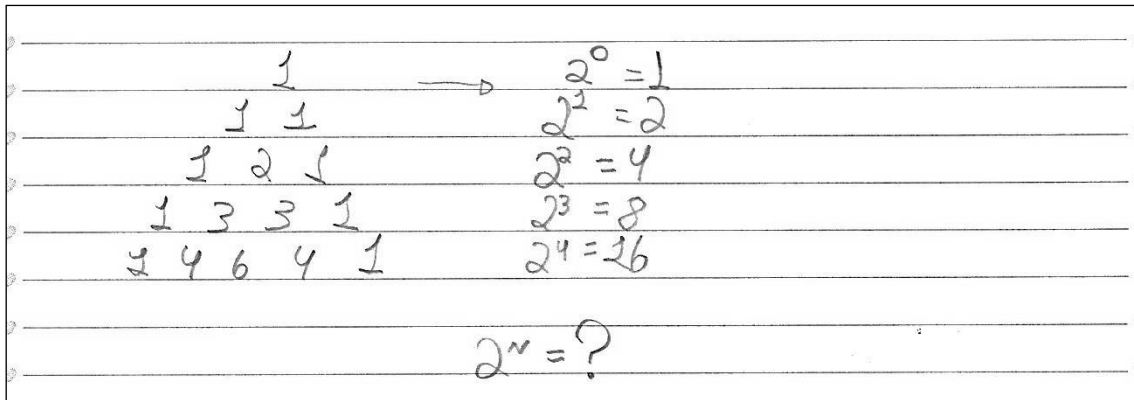 1 → 2⁰ = 1
1 1 2¹ = 2
1 2 1 2² = 4
1 3 3 1 2³ = 8
1 4 6 4 1 2⁴ = 16
2ⁿ = ?